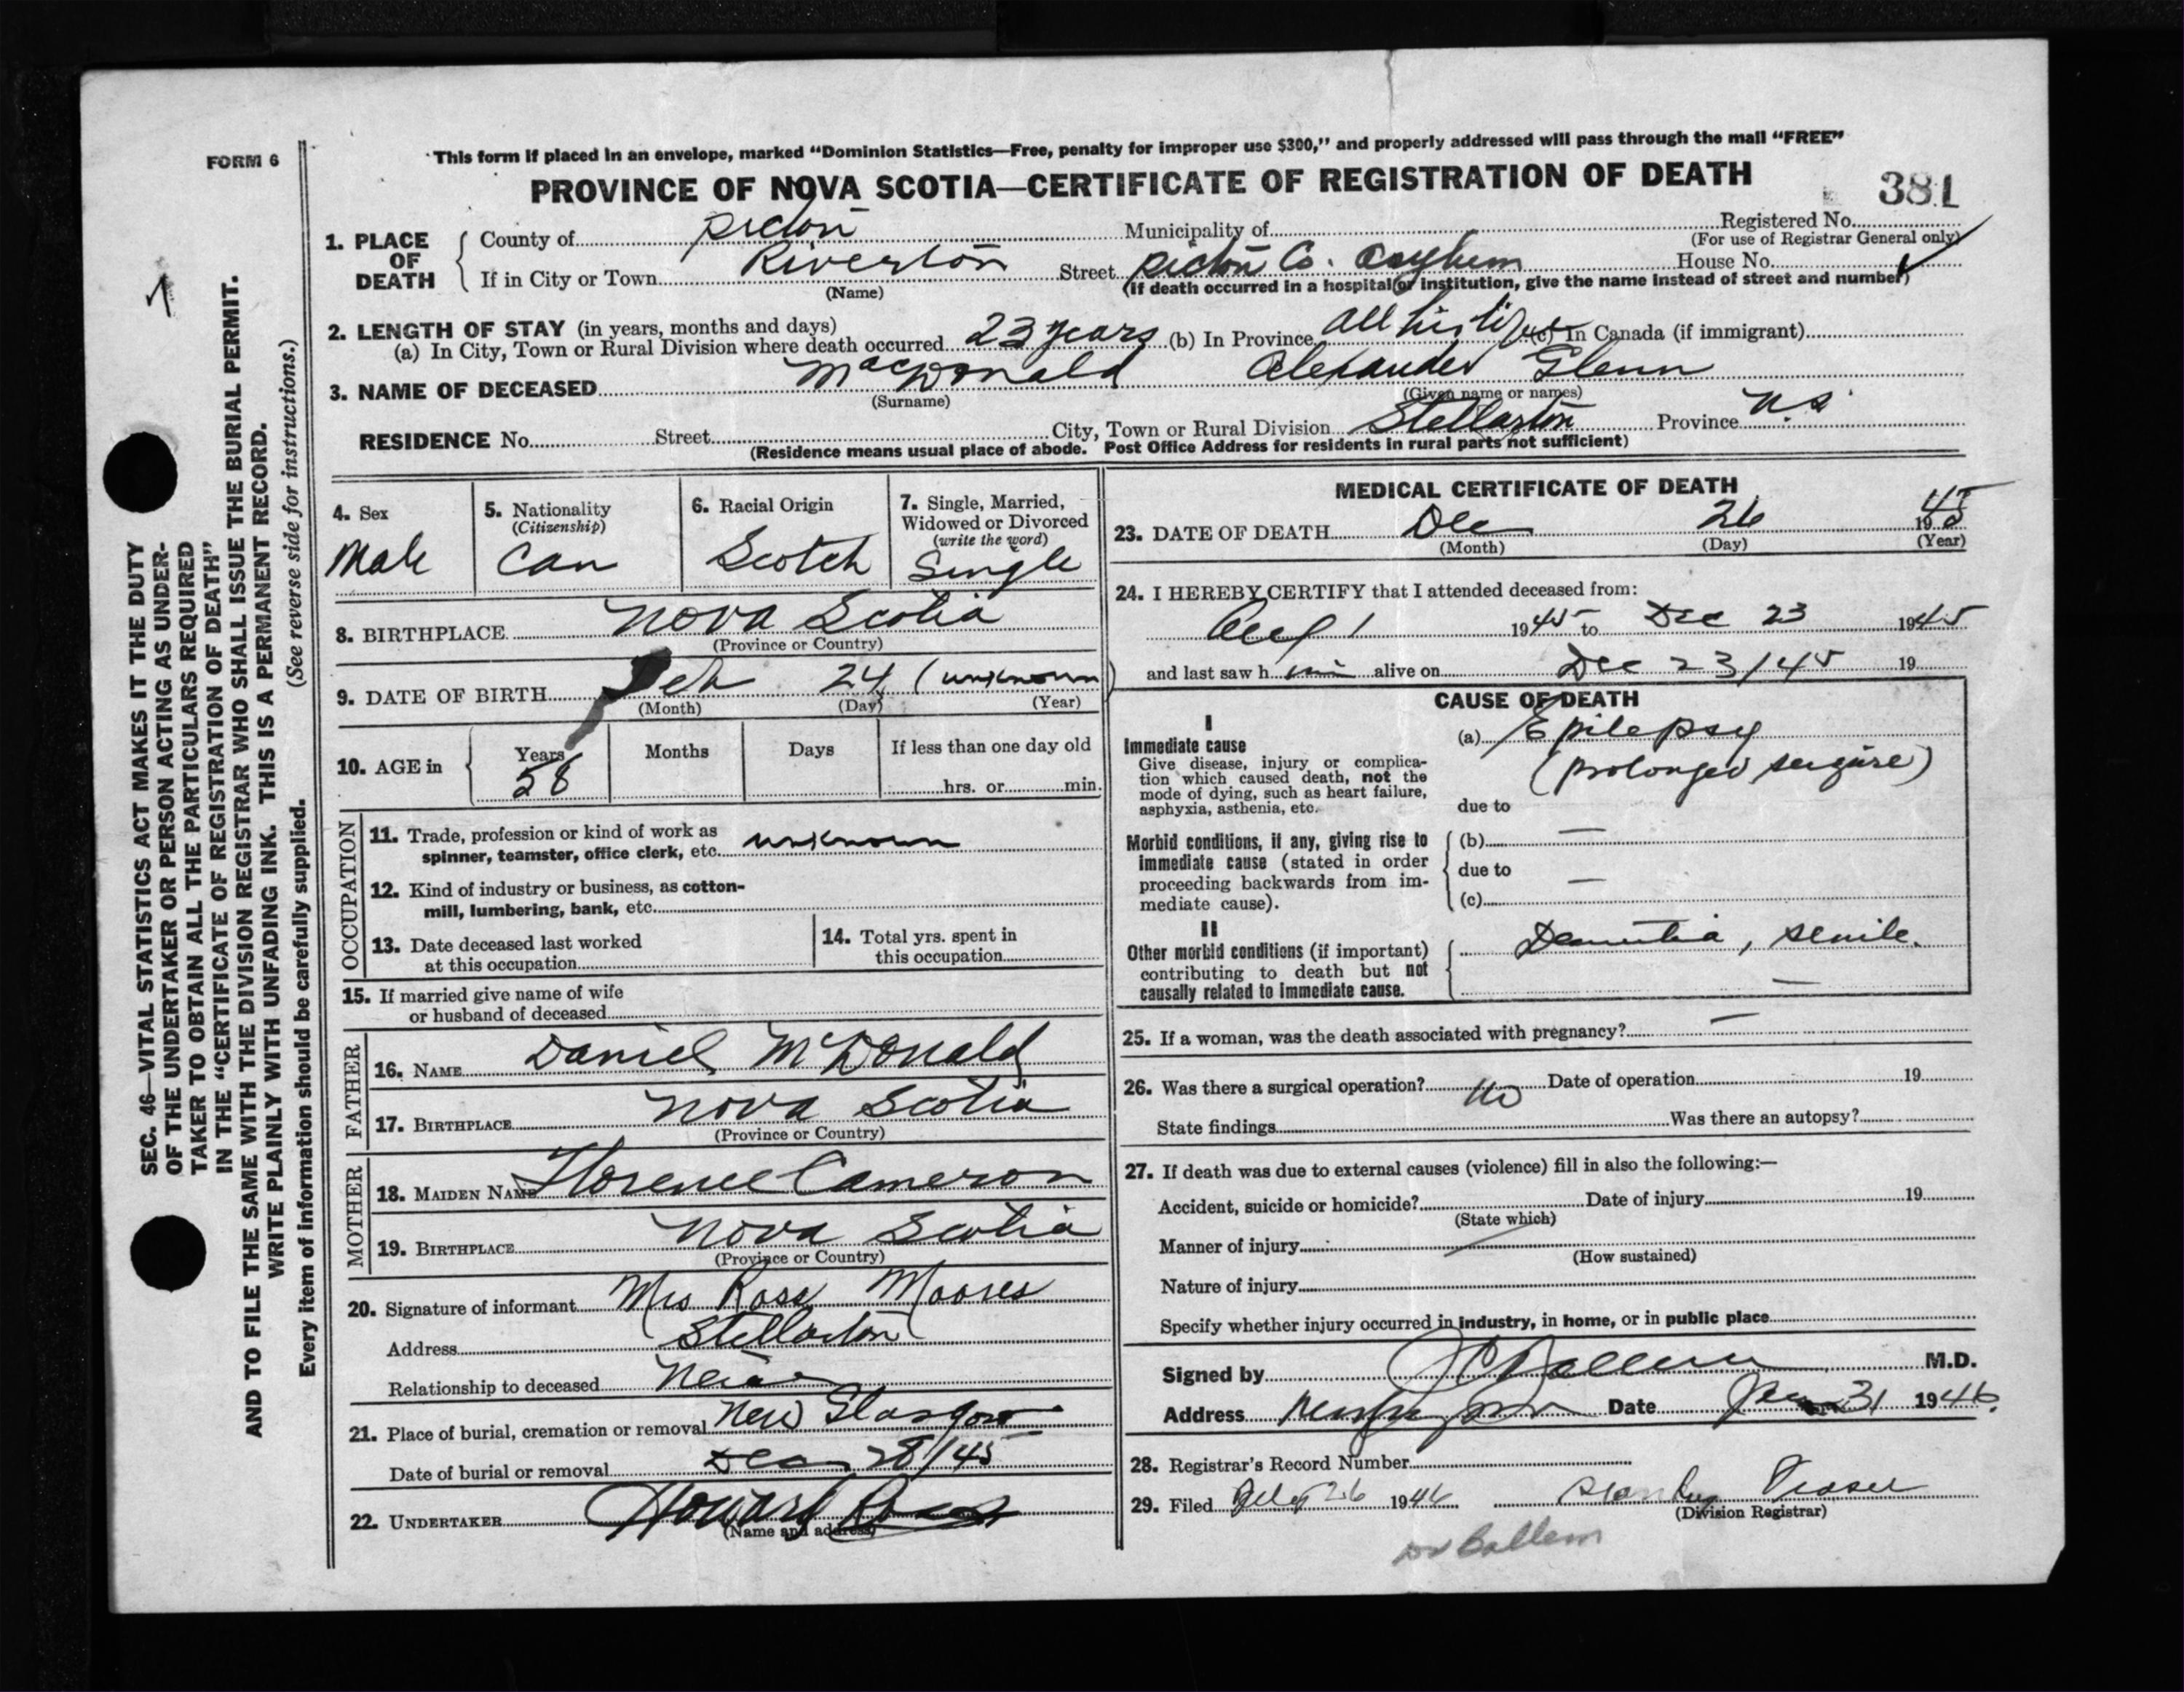 FORM 6
This form if placed in an envelope, marked “Dominion Statistics—Free, penalty for improper use $300,” and properly addressed will pass through the mail “FREE”
PROVINCE OF NOVA SCOTIA—CERTIFICATE OF REGISTRATION OF DEATH
381
1. PLACE OF DEATH
County of Pictou Municipality of Registered No.
(For use of Registrar General only)
If in City or Town Riverton Street Pictou Co. Asylum House No.
(Name) (If death occurred in a hospital or institution, give the name instead of street and number)
2. LENGTH OF STAY (in years, months and days)
(a) In City, Town or Rural Division where death occurred 23 years (b) In Province all his life (c) In Canada (if immigrant)
3. NAME OF DECEASED MacDonald Alexander Glenn
(Surname) (Given name or names)
RESIDENCE No. Street City, Town or Rural Division Stellarton Province N.S.
(Residence means usual place of abode. Post Office Address for residents in rural parts not sufficient)
4. Sex
Male
5. Nationality
(Citizenship)
Can
6. Racial Origin
Scotch
7. Single, Married,
Widowed or Divorced
(write the word)
Single
8. BIRTHPLACE Nova Scotia
(Province or Country)
9. DATE OF BIRTH Feb 24 (unknown)
(Month) (Day) (Year)
10. AGE in
Years Months Days If less than one day old
58 hrs. or min.
OCCUPATION
11. Trade, profession or kind of work as
spinner, teamster, office clerk, etc. unknown
12. Kind of industry or business, as cotton-
mill, lumbering, bank, etc.
13. Date deceased last worked
at this occupation
14. Total yrs. spent in
this occupation
15. If married give name of wife
or husband of deceased
FATHER
16. NAME Daniel McDonald
17. BIRTHPLACE Nova Scotia
(Province or Country)
MOTHER
18. MAIDEN NAME Florence Cameron
19. BIRTHPLACE Nova Scotia
(Province or Country)
20. Signature of informant Mrs Ross Moores
Address Stellarton
Relationship to deceased
21. Place of burial, cremation or removal New Glasgow
Date of burial or removal Dec 28/45
22. UNDERTAKER Howard
(Name and address)
MEDICAL CERTIFICATE OF DEATH
23. DATE OF DEATH Dec 26 1945
(Month) (Day) (Year)
24. I HEREBY CERTIFY that I attended deceased from:
1 1945 to Dec 23 1945
and last saw him alive on Dec 23/45 19
CAUSE OF DEATH
I
Immediate cause
Give disease, injury or complica-
tion which caused death, not the
mode of dying, such as heart failure,
asphyxia, asthenia, etc.
(a) Epilepsy
(prolonged seizure)
due to
Morbid conditions, if any, giving rise to
immediate cause (stated in order
proceeding backwards from im-
mediate cause).
(b) —
due to
(c) —
II
Other morbid conditions (if important)
contributing to death but not
causally related to immediate cause.
Dementia, senile.
—
25. If a woman, was the death associated with pregnancy? —
26. Was there a surgical operation? No Date of operation 19
State findings Was there an autopsy?
27. If death was due to external causes (violence) fill in also the following:—
Accident, suicide or homicide? Date of injury 19
(State which)
Manner of injury
(How sustained)
Nature of injury
Specify whether injury occurred in industry, in home, or in public place
Signed by M.D.
Address Date 31 1946
28. Registrar's Record Number
29. Filed 26 1946 Stanley Fraser
(Division Registrar)
Dr Ballem
SEC. 46—VITAL STATISTICS ACT MAKES IT THE DUTY
OF THE UNDERTAKER OR PERSON ACTING AS UNDER-
TAKER TO OBTAIN ALL THE PARTICULARS REQUIRED
IN THE “CERTIFICATE OF REGISTRATION OF DEATH”
AND TO FILE THE SAME WITH THE DIVISION REGISTRAR WHO SHALL ISSUE THE BURIAL PERMIT.
WRITE PLAINLY WITH UNFADING INK. THIS IS A PERMANENT RECORD.
(See reverse side for instructions.)
Every item of information should be carefully supplied.